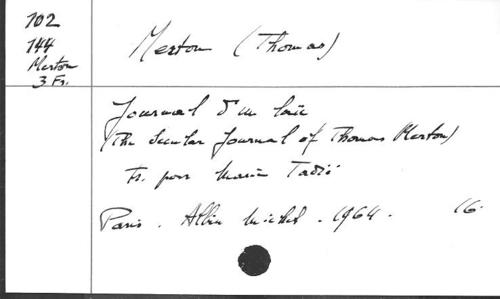 102
144
Merton
3 Fr.
Merton (Thomas)
Journal d'un laïc
(The Secular Journal of Thomas Merton)
Fr. par Marie Tadié
Paris. Albin Michel. 1964. 16